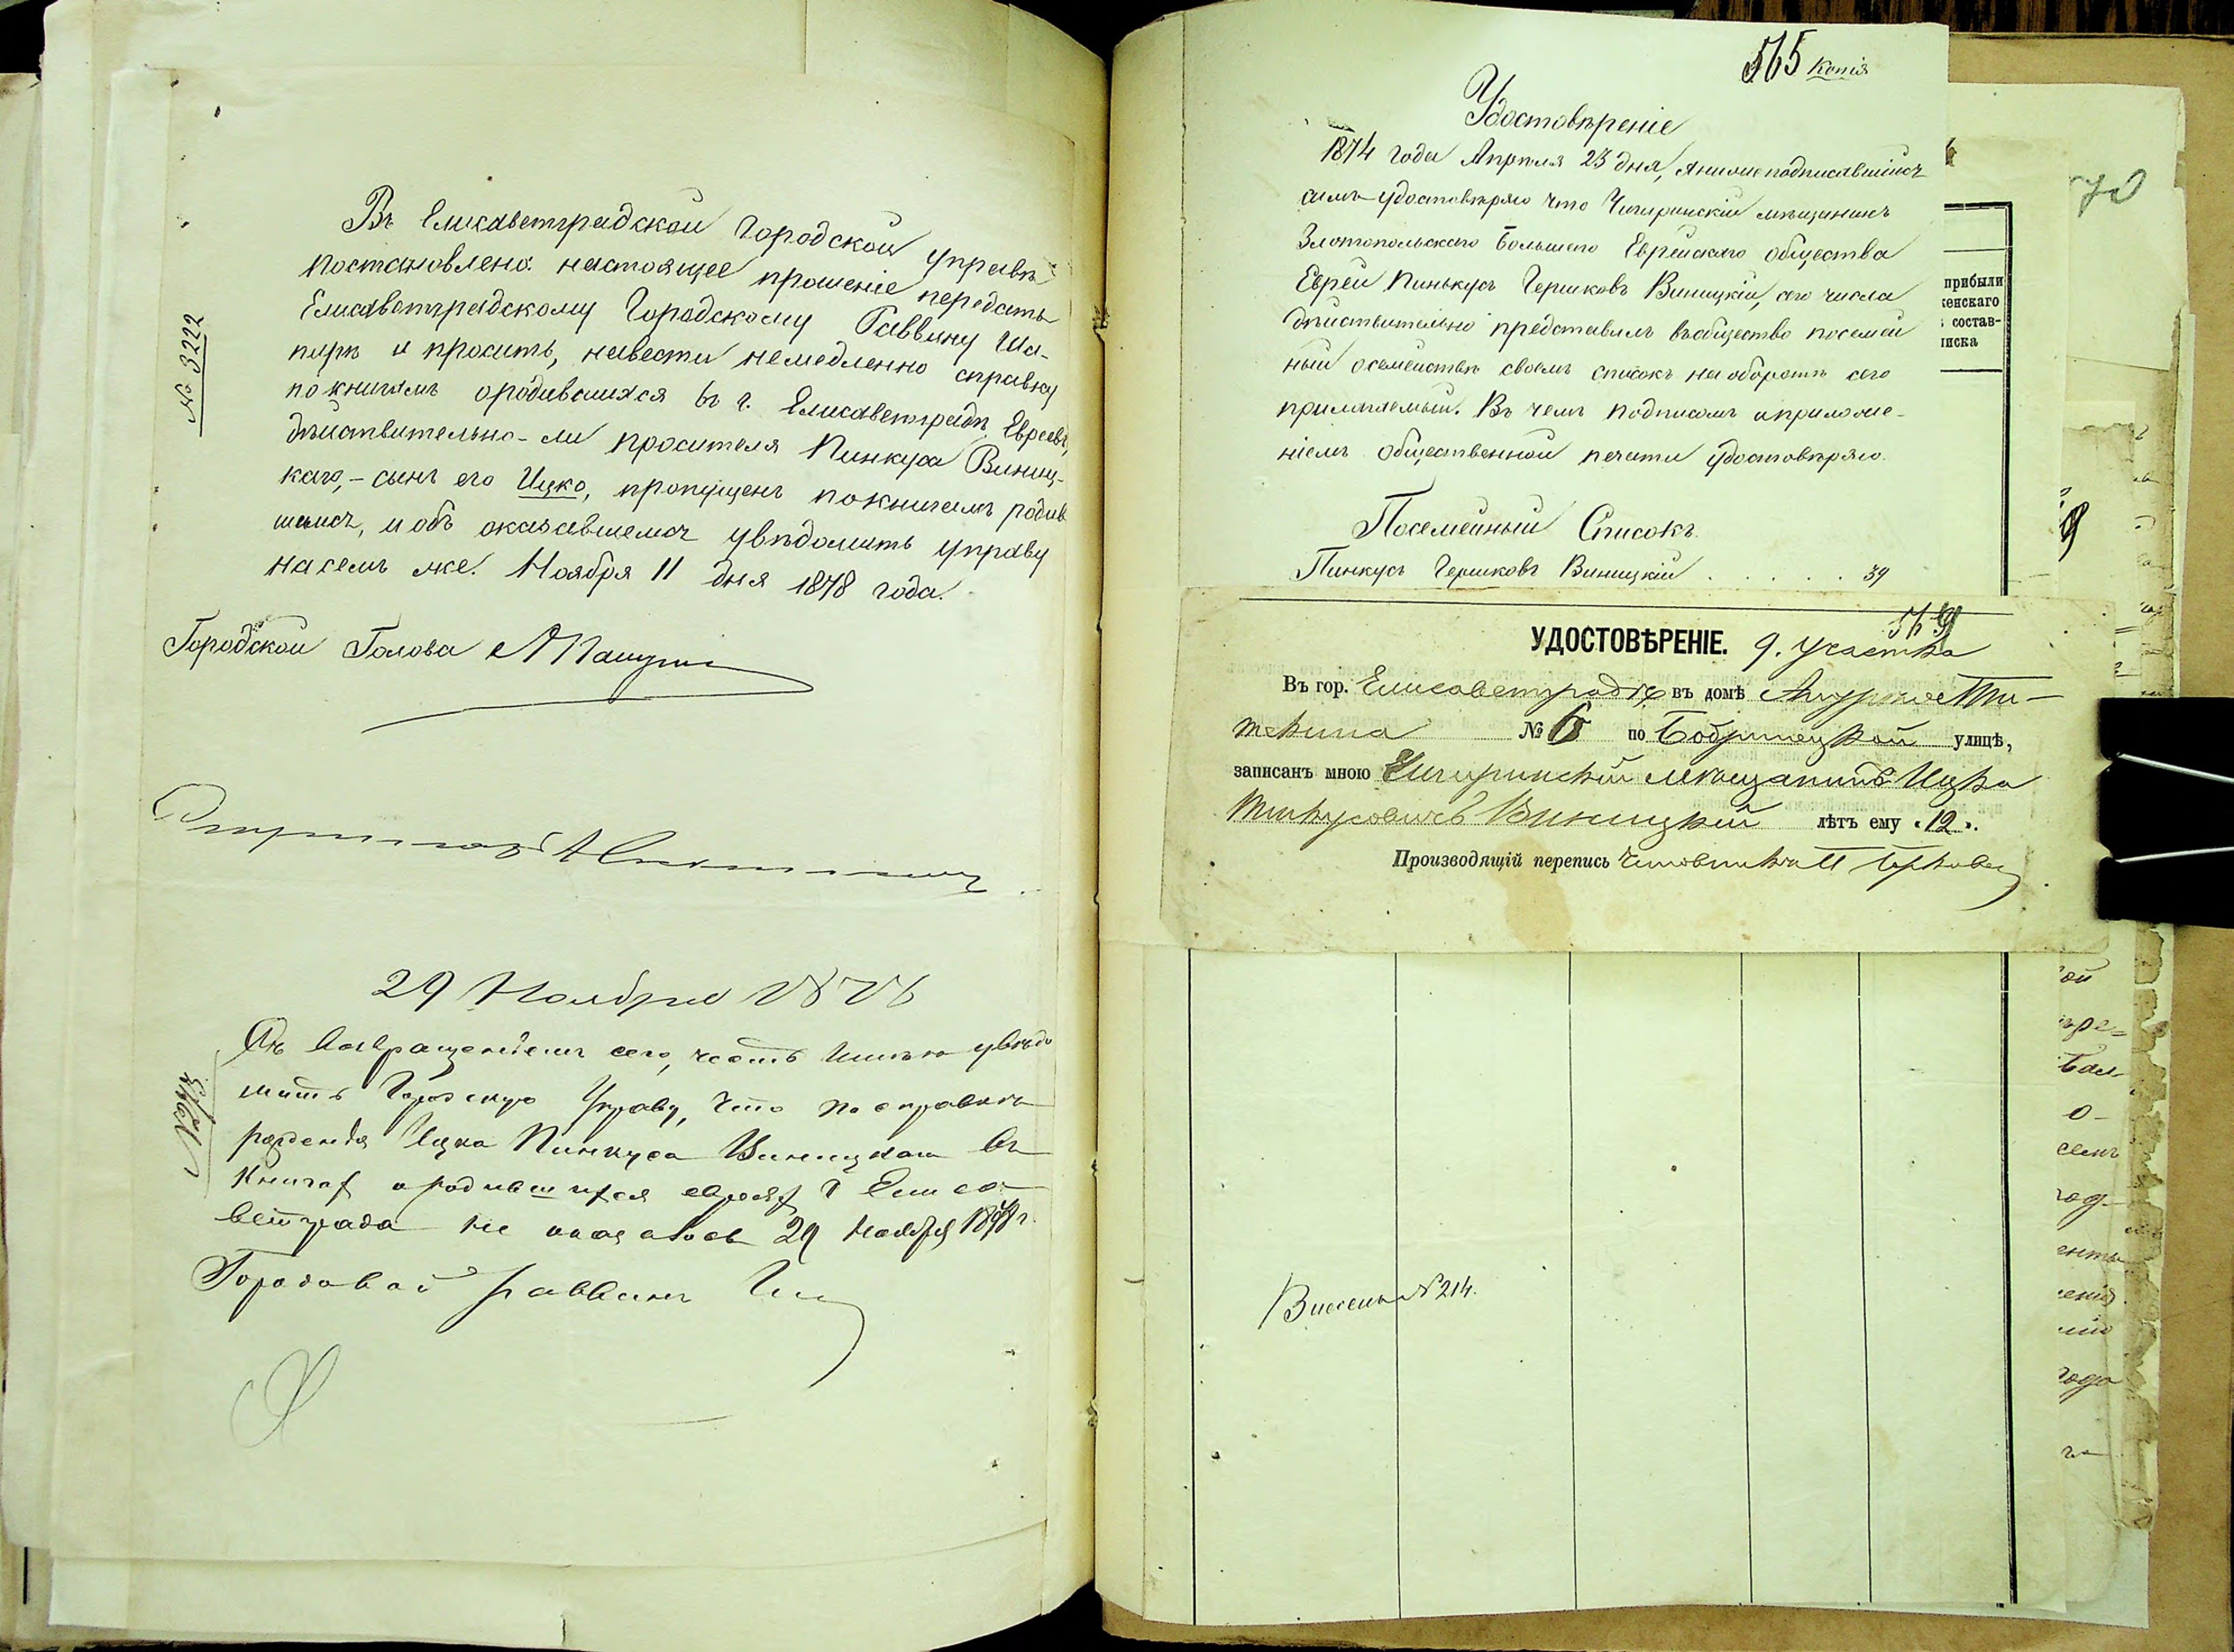 № 3222
Въ Елисаветградской Городской Управѣ
постановлено: настоящее прошеніе передать
Елисаветградскому Городскому Раввину Ша-
пиръ и просить, навести немедленно справку
по книгамъ о родившихся въ г. Елисаветградѣ Евреевъ,
дѣйствительно-ли просителя Пинкуса Виниц-
каго,- сынъ его Ицко, пропущенъ по книгамъ родив
шимся, и объ оказавшемся увѣдомить управу
на семъ же. Ноября 11 дня 1878 года.
Городской Голова
29 Ноября 1878
Съ возвращеніемъ сего, честь имѣю увѣдо
мить Городскую Управу, что по справкѣ
рожденія Ицка Пинкуса Виницкаго въ
книгах о родившихся евреях г Елиса
ветграда не оказалось 29 Ноября 1878 г.
Городовой раввинъ
565 Копія
Удостовѣреніе
1874 года Апрѣля 23 дня, я нижеподписавшійся
симъ удостовѣряю что Чигиринскій мѣщанинъ
Златопольскаго Большого Еврейскаго общества
Еврей Пинькусъ Гершковъ Виницкій, сего числа
дѣйствительно представилъ въ общество посемей
ный о семействѣ своемъ списокъ на оборотѣ сего
прилагаемый. Въ чемъ подписомъ и приложе-
ніемъ общественной печати удостовѣряю.
Посемейный Списокъ.
Пинкусъ Гершковъ Виницкій . . . . . . 39
прибыли
женскаго
состав-
писка
70
УДОСТОВѢРЕНІЕ. 9. Участка
Въ гор. Елисаветградѣ въ домѣ
№ 6 по Бобринецкой улицѣ,
записанъ мною Чигиринскій мѣщанинъ Ицко
Пинкусовичъ Виницкій лѣтъ ему «12».
Производящій перепись
Внесенъ № 214.